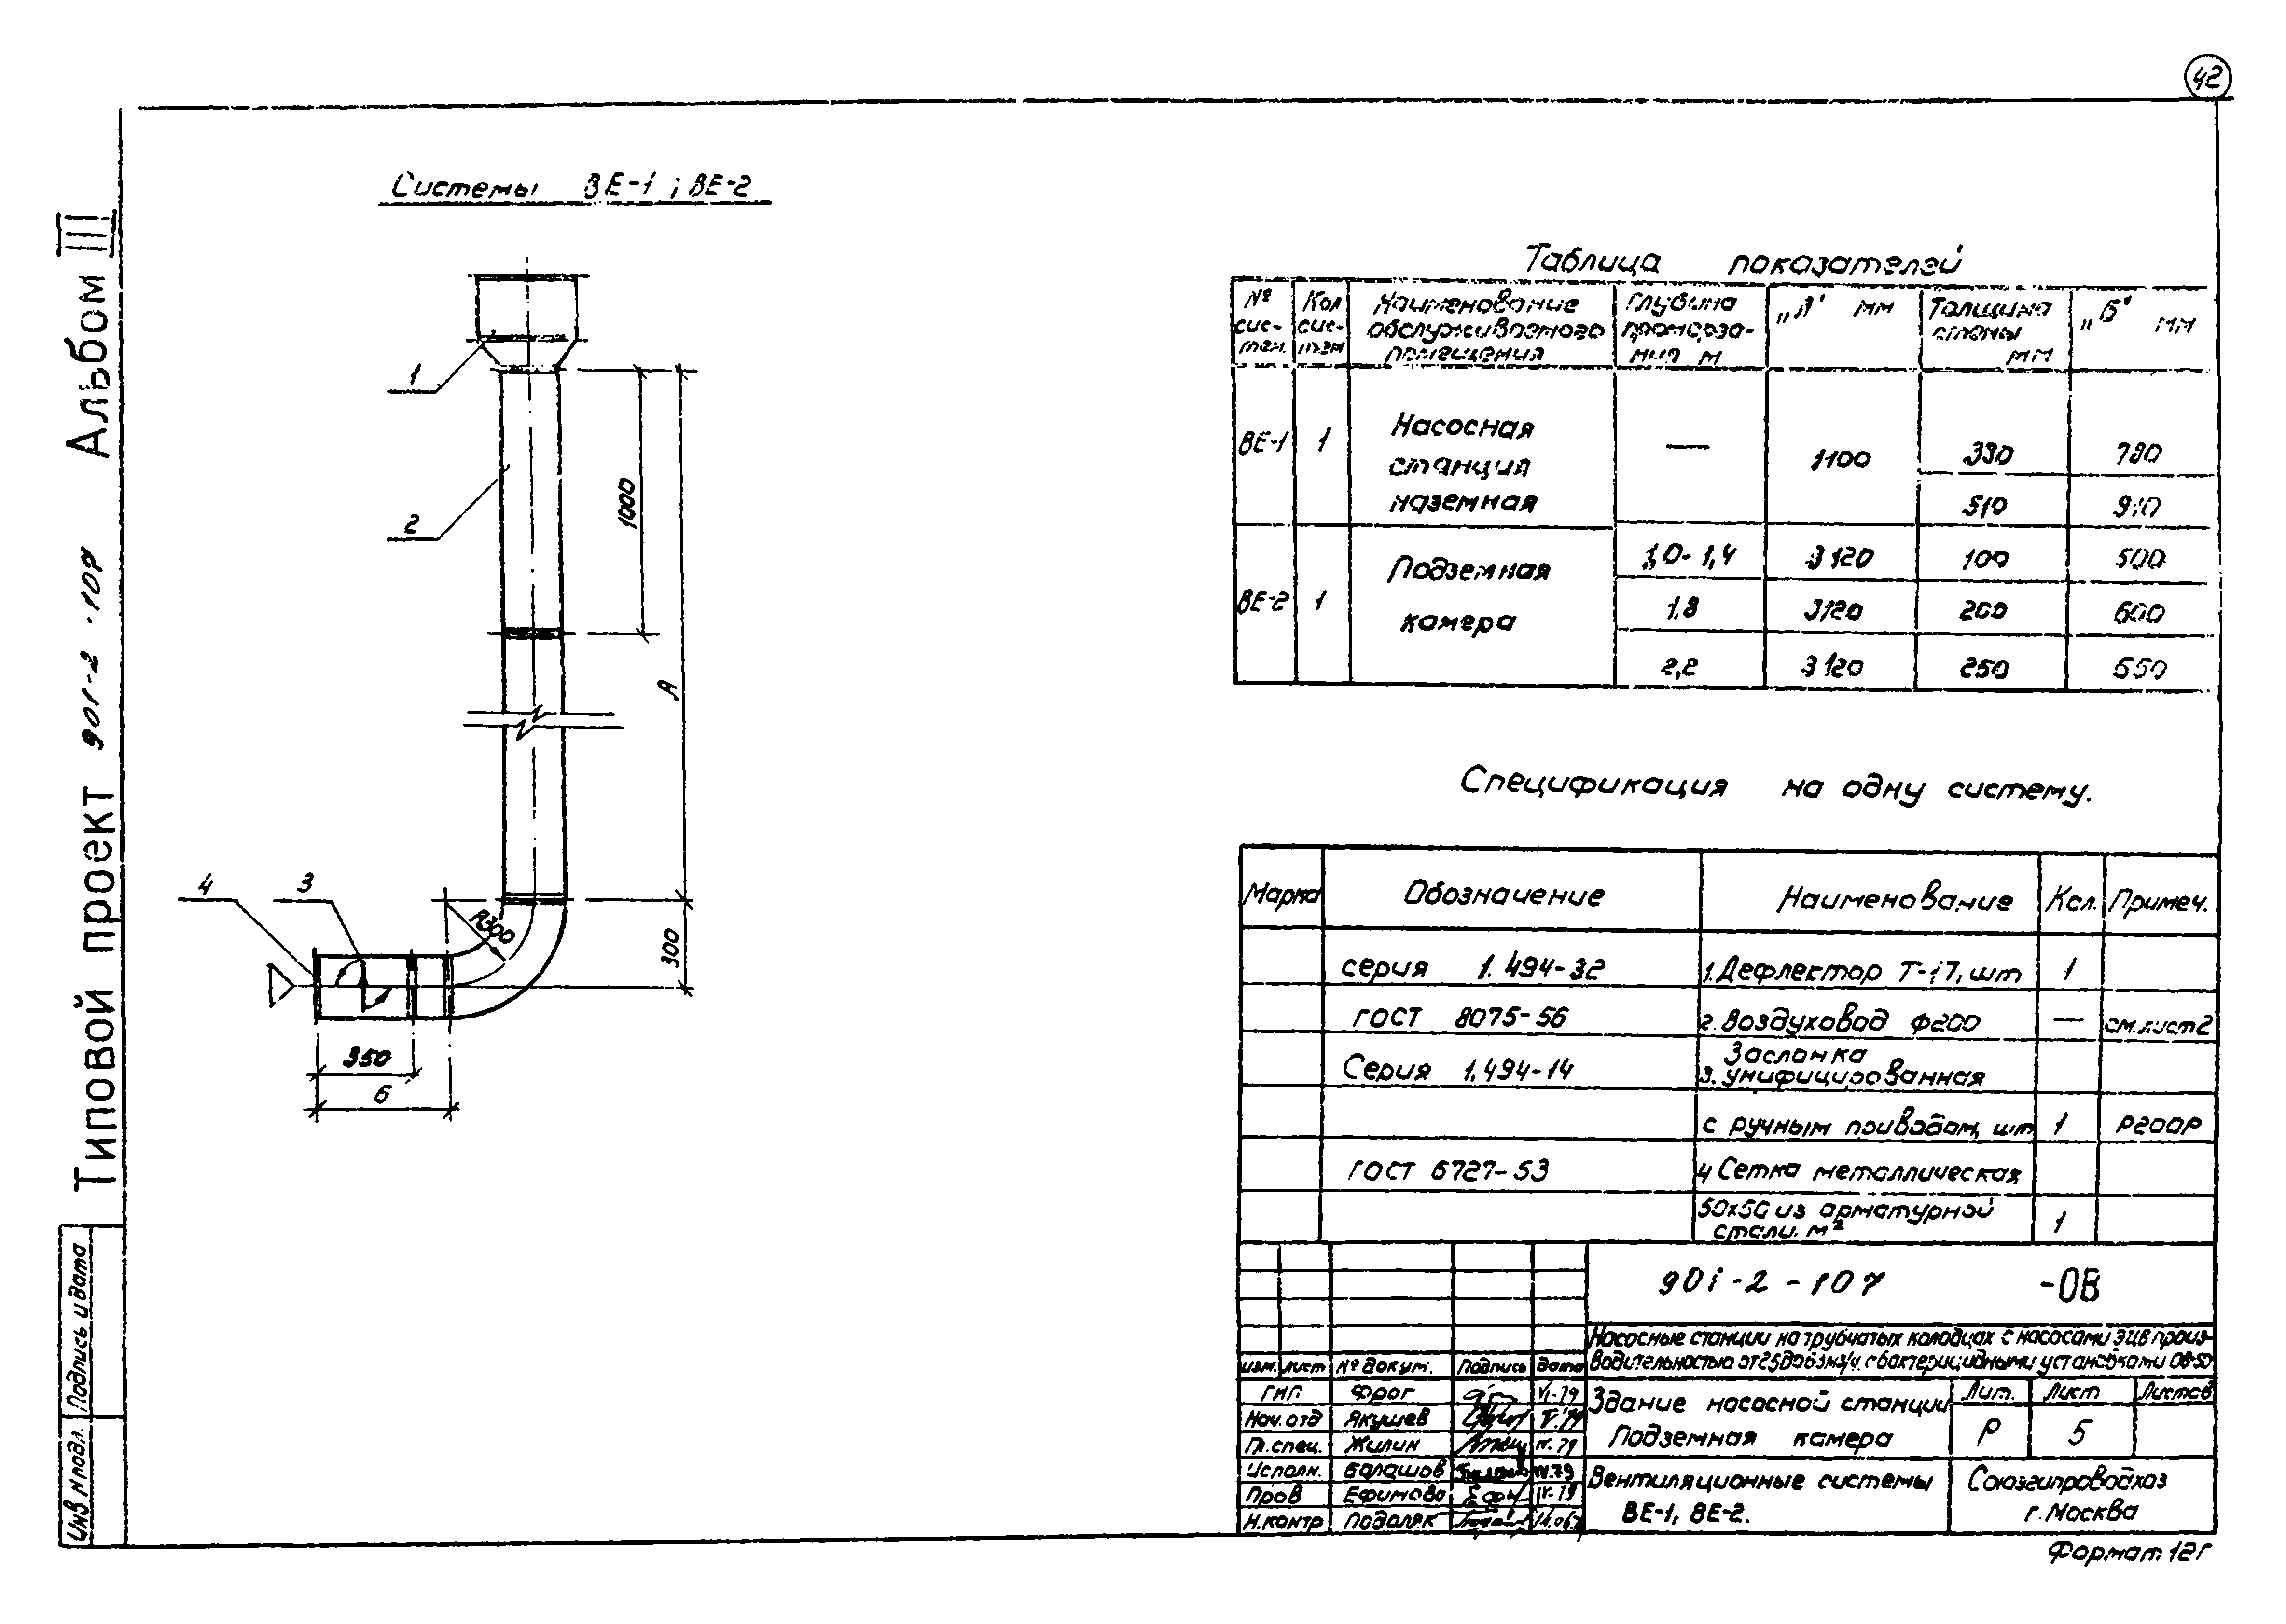 42
Типовой проект 901-2-107 Альбом III
Системы ВЕ-1; ВЕ-2
1
2
1000
А
4
3
R300
300
350
б
Таблица показателей
№ сис- тем.
Кол сис- тем
Наименование обслуживаемого помещения
Глубина промерза- ния м
„А" мм
Толщина стены мм
„Б" мм
ВЕ-1 1 Насосная станция наземная — 1100 380 780
510 910
ВЕ-2 1 Подземная камера 1,0-1,4 3120 100 500
1,8 3120 200 600
2,2 3120 250 650
Спецификация на одну систему.
Марка Обозначение Наименование Кол. Примеч.
серия 1.494-32 1. Дефлектор Т-17, шт 1
ГОСТ 8075-56 2. Воздуховод ф200 — см. лист 2
Серия 1.494-14 3. Заслонка унифицированная
с ручным приводом, шт 1 Р200Р
ГОСТ 6727-53 4 Сетка металлическая
50х50 из арматурной стали. м² 1
901-2-107 -ОВ
Насосные станции на трубчатых колодцах с насосами ЭЦВ произ-
водительностью от 25 до 63 м3/ч. с бактерицидными установками ОВ-50
изм. лист № докум. Подпись Дата
ГИП Фрог VI-79
Нач. отд Якушев
Гл. спец. Жилин IV.79
Исполн. Балашов IV.79
Пров Ефимова IV-79
Н.контр Подоляк
Здание насосной станции
Подземная камера
Лит. Лист Листов
Р 5
Вентиляционные системы
ВЕ-1, ВЕ-2.
Союзгипроводхоз
г. Москва
Формат 12Г
Подпись и дата
Инв N подл.